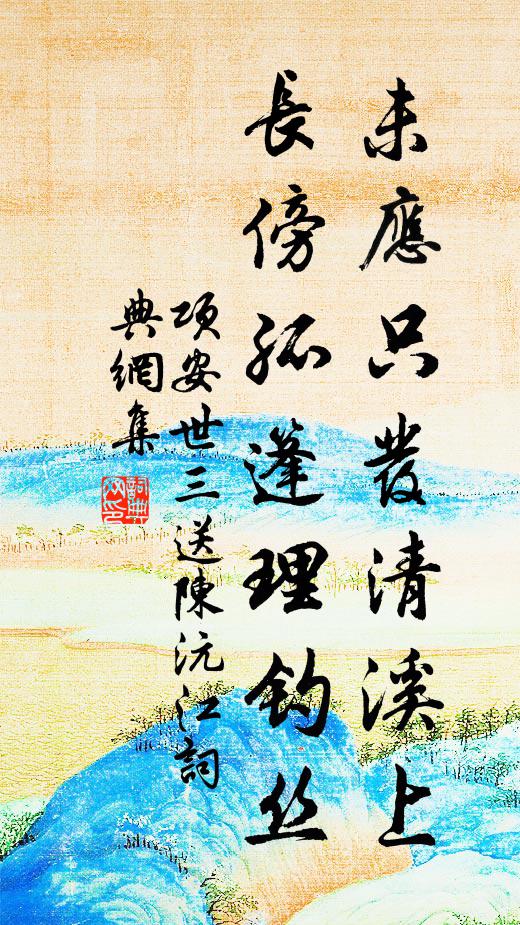 未應只發清溪上
長傍孤蓬理钓丝
項安世三送陳沅江詞
典網集
詞典